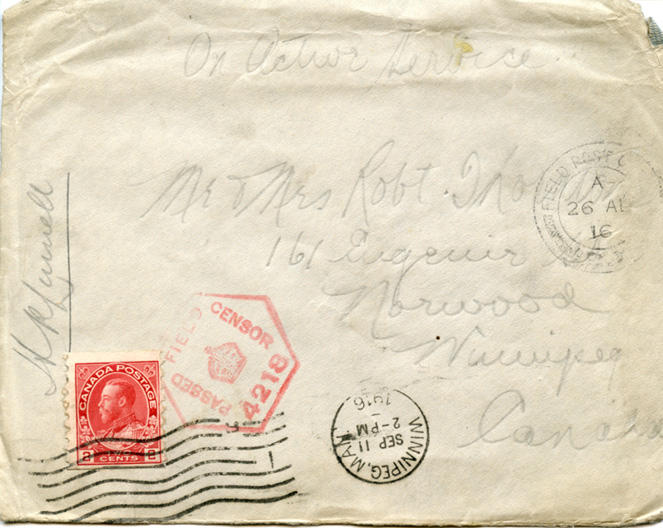 On Active Service
Mr & Mrs Robt.
161 Eugenie
Norwood
Winnipeg
Canada
FIELD POST
A
26 AU
16
PASSED FIELD CENSOR
4218
CANADA POSTAGE
2 CENTS 2
WINNIPEG, MAN.
SEP 11
2-PM
1916